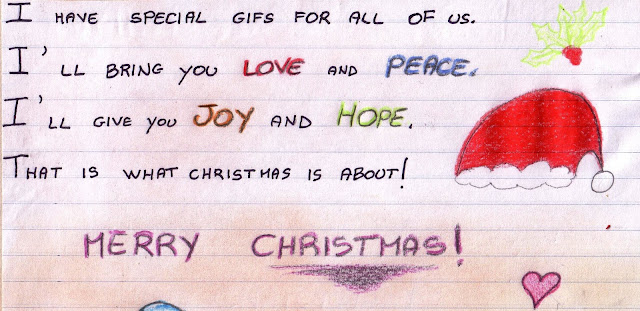 I HAVE SPECIAL GIFS FOR ALL OF US.
I'LL BRING YOU LOVE AND PEACE.
I'LL GIVE YOU JOY AND HOPE.
THAT IS WHAT CHRISTMAS IS ABOUT!
MERRY CHRISTMAS!